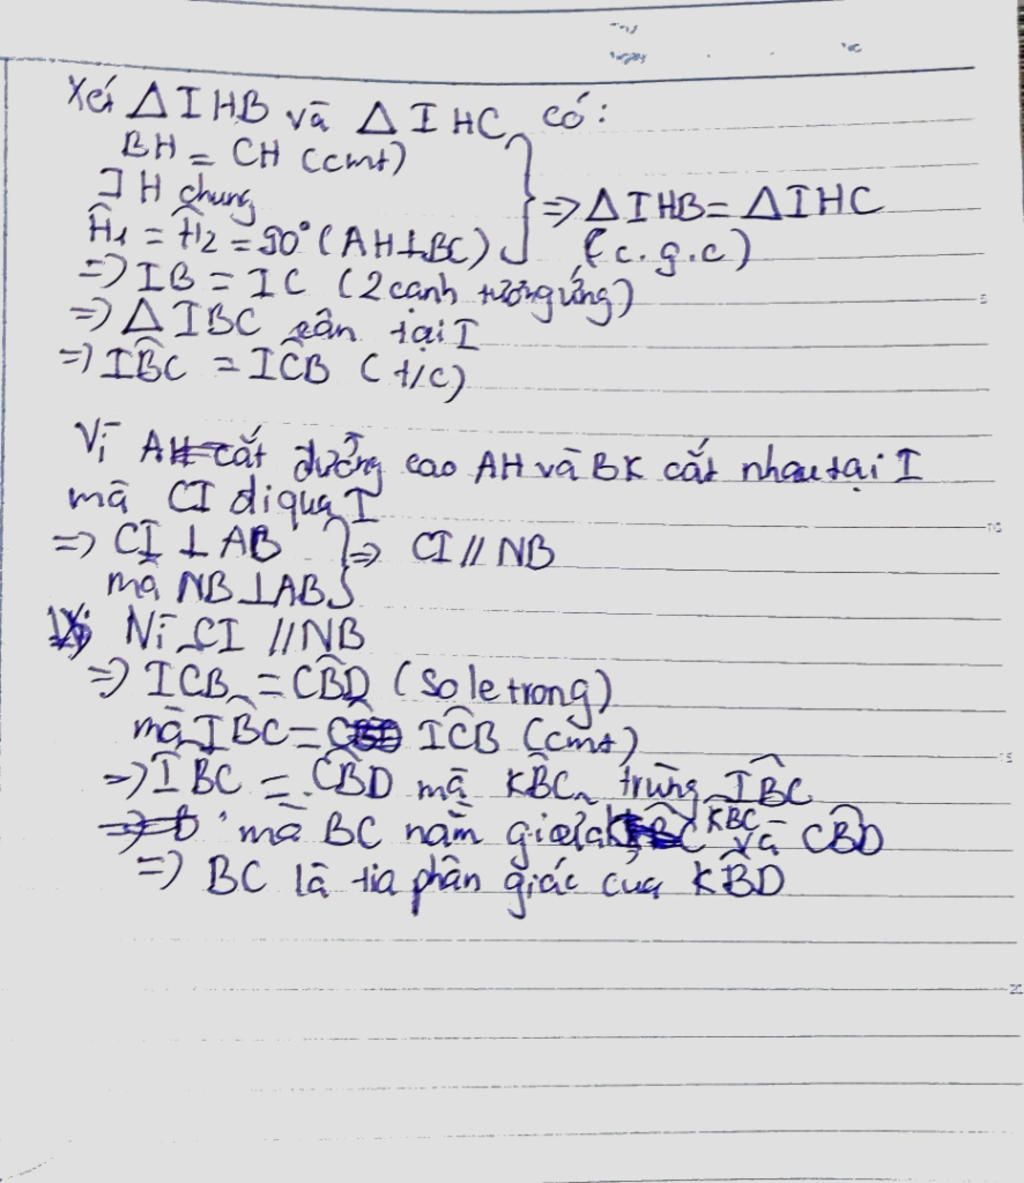 Xét △IHB và △IHC có:
BH = CH (cmt)
IH chung
Ĥ₁ = Ĥ₂ = 90° (AH⊥BC)
} => △IHB = △IHC
(c.g.c)
=> IB = IC (2 cạnh tương ứng)
=> △IBC cân tại I
=> IB̂C = IĈB (t/c)
Vì AH cắt đường cao AH và BK cắt nhau tại I
mà CI đi qua I
=> CI ⊥ AB } => CI // NB
mà NB⊥AB
Vì CI // NB
=> ICB = CB̂D (so le trong)
mà IB̂C = IĈB (cmt)
=> IB̂C = CB̂D mà KB̂C trùng IB̂C
mà BC nằm giữa KBC và CB̂D
=> BC là tia phân giác của KB̂D